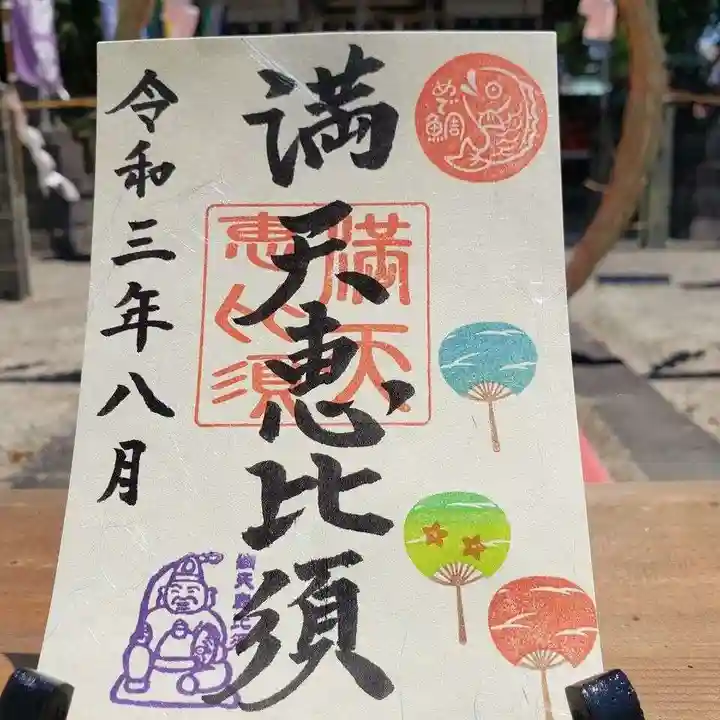 めで鯛
満天恵比須
満天
恵比須
令和三年八月